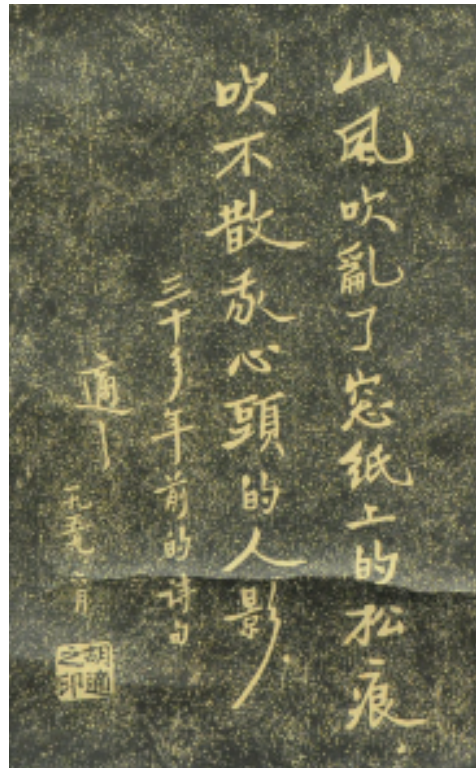 山風吹亂了窓紙上的松痕
吹不散我心頭的人影．
三十多年前的詩句
適之
一九五九、一月
胡適之印